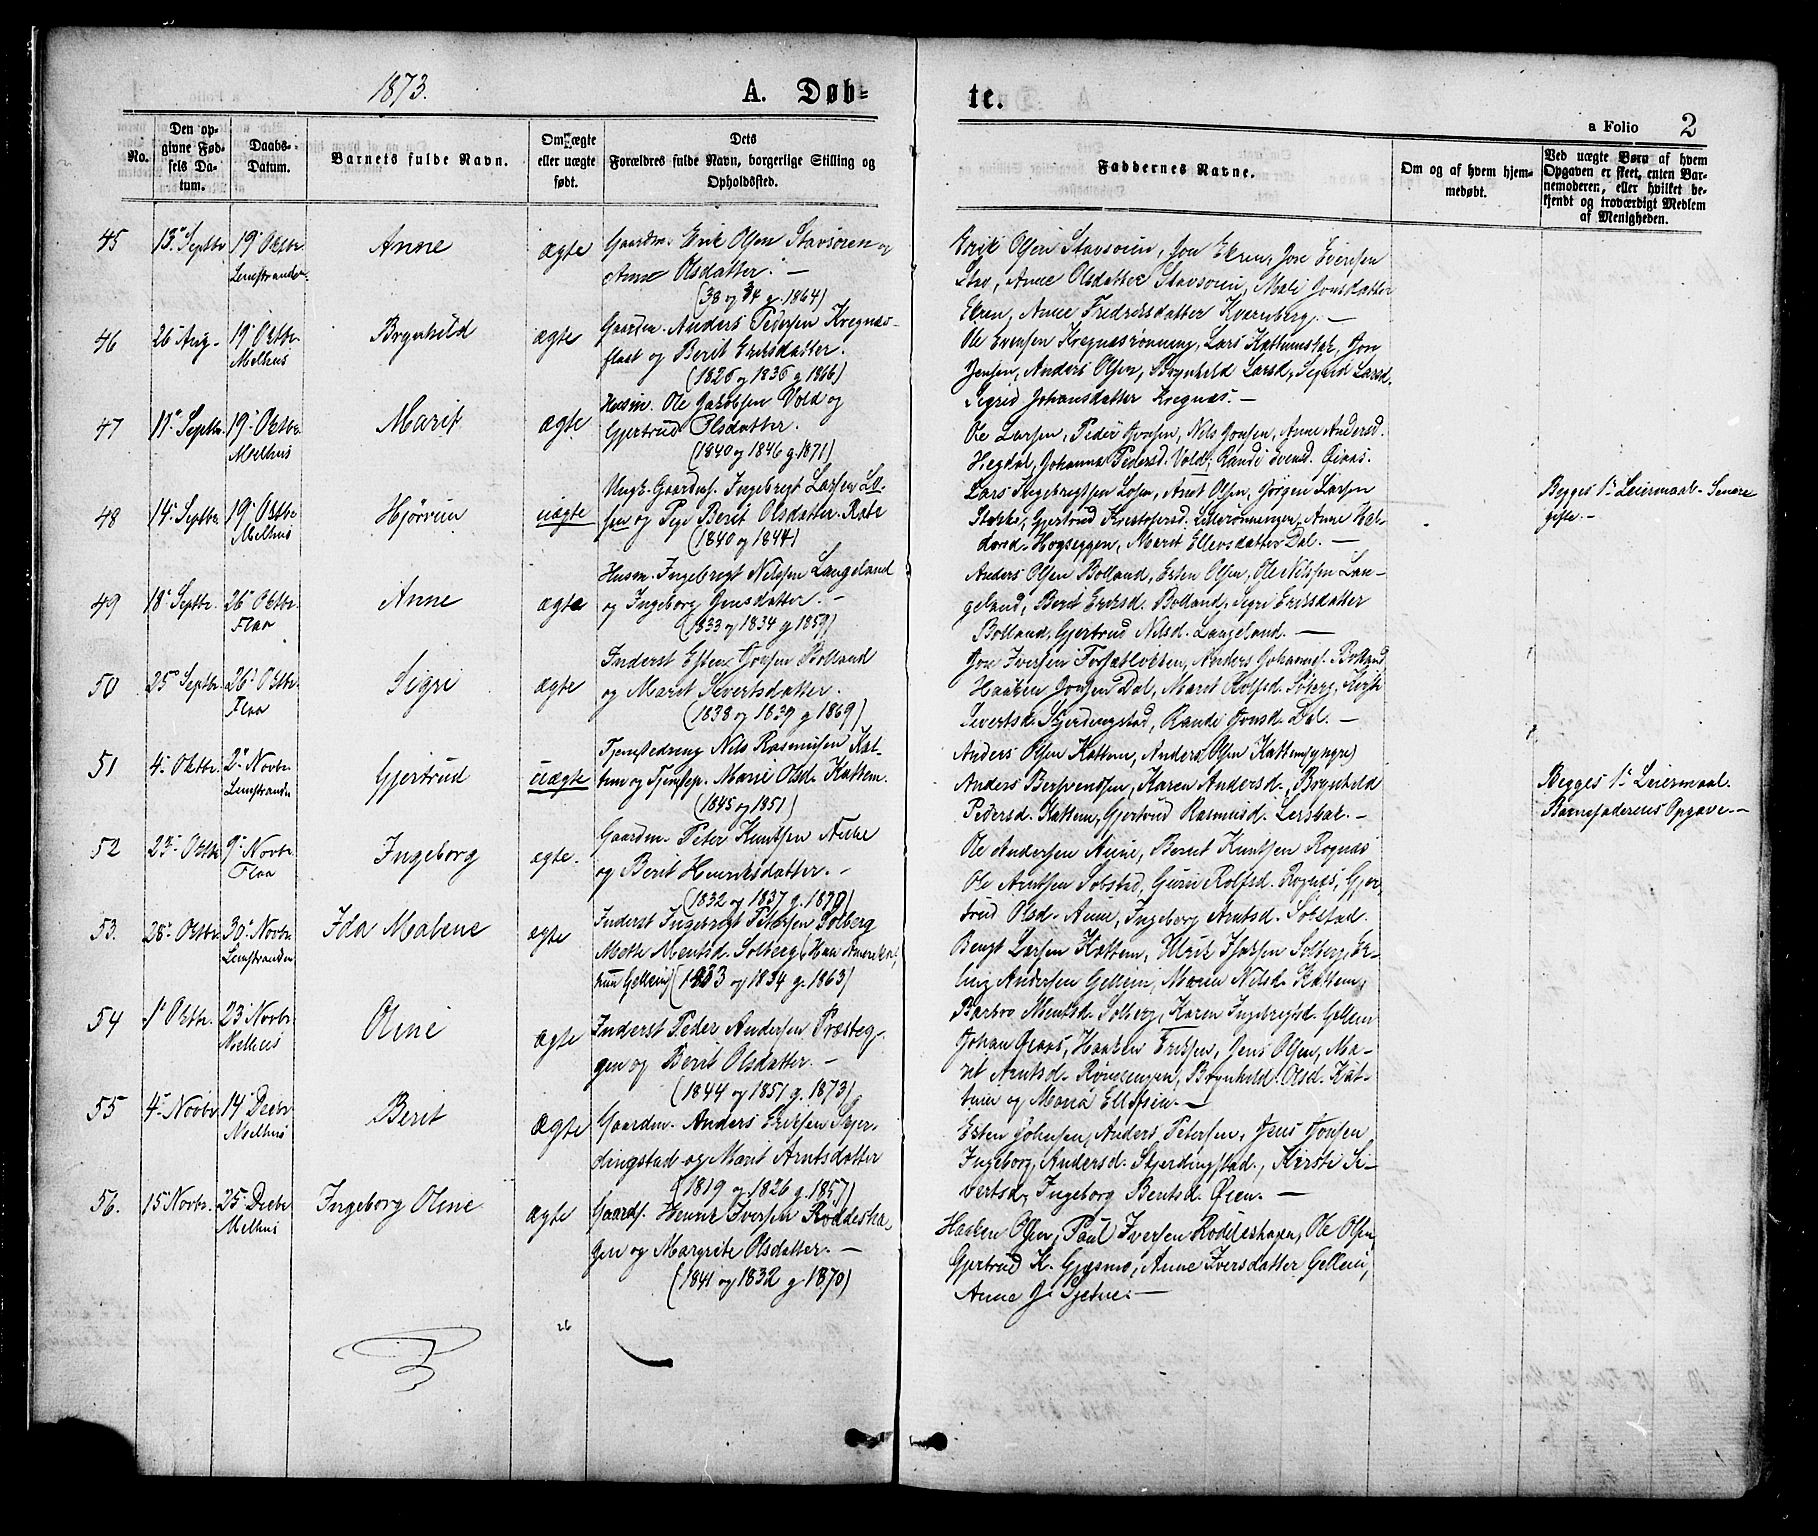 1873.
A. Døb-
te.
a Folio 2
No.
Den op-
givne Fød-
sels Da-
tum.
Daabs-
Datum.
Barnets fulde Navn.
Om ægte
eller uægte
født.
Dets
Forældres fulde Navn, borgerlige Stilling og
Opholdssted.
Faddernes Navne.
Om og af hvem hjem-
medøbt.
Ved uægte Børn af hvem
Opgaven er skeet, enten Bar-
nemoderen, eller hvilket be-
kjendt og troværdigt Medlem
af Menigheden.
45 13 Septbr 19 Oktbr. Anne ægte Gaardm. Erik Olsen Stavsøien og
Lenstranden Anne Olsdatter. —
(38 og 34 g. 1864)
Erik Olsen Stavsøien, Jon Ekren, Jon Evensen
Stav, Anne Olsdatter Stavsøien, Mali Jonsdatter
Ekren, Anne Fredriksdatter Kvernberg. —
46 26 Aug. 19 Oktbr. Brynhild ægte Gaardm. Anders Pedersen Kregnæs-
Melhus flaat og Berit Eriksdatter.
(1826 og 1836 g. 1866)
Ole Evensen Kregnæsrønning, Lars Kathumstak, Jon
Jensen, Anders Olsen, Brynhild Larsd., Sigrid Larsd.
Sigrid Johansdatter Kregnæs. —
47 11 Septbr. 19 Oktbr. Marit ægte Husm. Ole Jakobsen Vold og
Melhus Gjertrud Olsdatter.
(1840 og 1846 g. 1871)
Ole Larsen, Peder Jonsen, Nils Jonsen, Anne Andersd.
Hegdal, Johanna Pedersd. Vold, Randi Svensd. Graas.
48 14 Septbr. 19 Oktbr. Hjørun uægte Ungk. Gaardm. Ingebrigt Larsen Lo-
Melhus sen og Pige Berit Olsdatter Rate
(1840 og 1844)
Lars Ingebrigtsen Losen, Arnt Olsen, Jørgen Larsen
Stokke, Gjertrud Kristofersd. Lillerønningen, Anne Hal-
dorsd. Hogseggen, Marit Ellevsdatter Dal. —
Begges 1' Leiermaal. Senere
gifte. —
49 18 Septbr. 26 Oktbr. Anne ægte Husm. Ingebrigt Nilssen Langeland
Flaa og Ingeborg Jensdatter. —
(1833 og 1834 g. 1859)
Anders Olsen Bolland, Esten Olsen, Ole Nilssen Lan-
geland, Berit Eriksd. Bolland, Sigri Eriksdatter
Bolland, Gjertrud Nilsd. Langeland. —
50 25 Septbr. 26 Oktbr. Sigri ægte Inderst Esten Jonsen Bolland
Flaa og Marit Sivertsdatter.
(1838 og 1839 g 1869)
Jon Iversen Fosatløkken, Anders Johannes. Bolland
Haaken Jonsen Dal, Marit Rolfsd. Søberg, Kirsti
Sivertsd. Skjerdingstad, Randi Jonsd. Dal. —
51 4 Oktbr. 2 Novbr. Gjertrud uægte Tjenestedreng Nils Rasmussen Kat-
Lenstranden tem og Tjenstep. Marie Olsd. Kattem.
(1845 og 1851)
Anders Olsen Kattem, Anders Olsen Kattem (yngre)
Anders Berpendsen, Karen Andersd., Brynhild
Pedersd. Kattem, Gjertrud Rasmusd. Lersbak. —
Begges 1' Leiermaal.
Barnefaderens Opgave. —
52 23 Oktbr. 9 Novbr. Ingeborg ægte. Gaardm. Peter Knutsen Aune
Flaa og Berit Henriksdatter. —
(1832 og 1837 g. 1870)
Ole Andersen Aune, Berit Knutsen Rognæs
Ole Arntsen Sobstad, Guri Rolfsd. Rognæs, Gjer-
trud Olsd. Aune, Ingeborg Arntsd. Sobstad.
53. 28 Oktbr. 30 Novbr. Ida Malene ægte Inderst Ingebrigt Petersen Solberg
Lenstranden Mette Mentsd. Solberg (Han Amerika,
hun Gellein) (1833 og 1834 g. 1863)
Bengt Larsen Kattem, Ulrik Olsen Solberg, Er-
ling Andersen Gellein, Maren Nilsd. Kattem,
Barbro Mentsd. Solberg, Karen Ingebrigtsd. Gellein
54 1 Oktbr. 23 Novbr. Oline ægte Inderst Peder Andersen Præsteg-
Melhus gen og Berit Olsdatter. —
(1844 og 1851 g. 1873)
Johan Graas, Haaken Eriksen, Jens Olsen, Ma-
rit Arntsd. Rønningen, Brynhild Olsd. Kat-
tum og Maria Ellefsen. —
55 4 Novbr. 14 Decbr. Berit ægte Gaardm. Anders Eriksen Skjer-
Melhus dingstad og Marit Arntsdatter
(1819 og 1826 g. 1857)
Esten Johnsen, Anders Petersen, Jens Jonsen
Ingeborg Andersd. Skjerdingstad, Kirsti Si-
vertsd., Ingeborg Bentsd. Øien. —
56. 15 Novbr. 25 Decbr. Ingeborg Oline ægte Gaardf. Henrik Iversen Roddesha-
Melhus gen og Margrete Olsdatter. —
(1841 og 1832 g 1870)
Haaken Olsen, Paul Iversen Roddeshagen, Ole Olsen,
Gjertrud K. Gjesmo, Anne Iversdatter Gellein,
Anne J. Tjetne. —
26